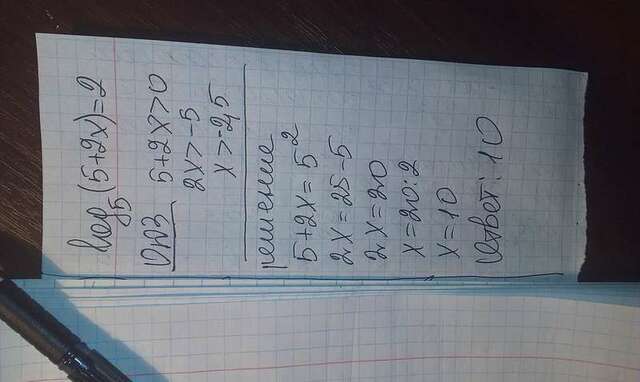 log₅(5+2x)=2
ОДЗ 5+2x>0
2x>-5
x>-2,5
Решение
5+2x=5²
2x=25-5
2x=20
x=20:2
x=10
Ответ: 10